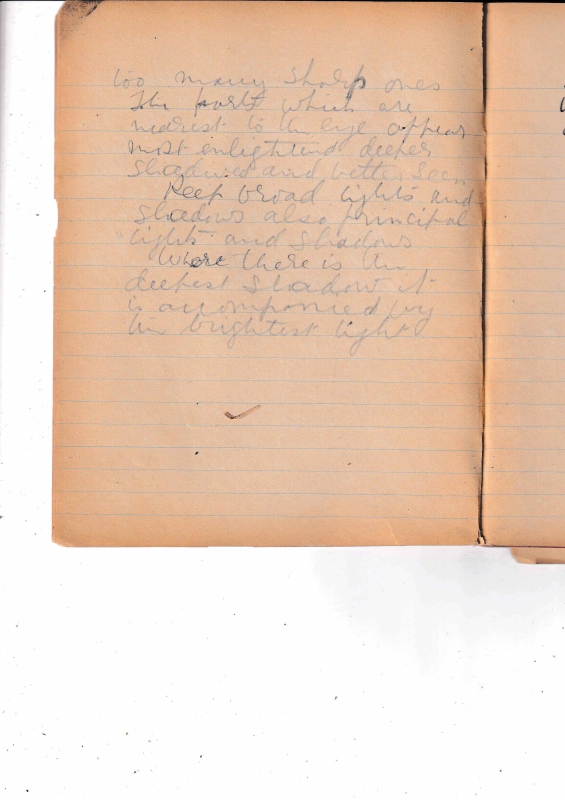 too many sharp ones
The parts which are
nearest to the eye appear
most enlightened deeper
shadowed and better seen
Keep broad lights and
shadows also principal
lights and shadows
Where there is the
deepest shadow it
is accompanied by
the brightest light